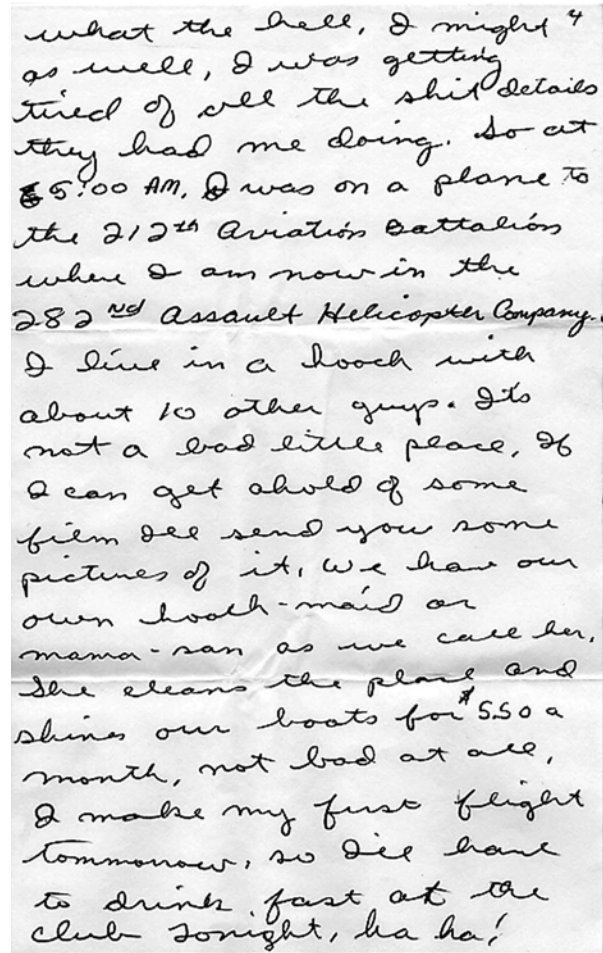 what the hell, I might 4
as well, I was getting
tired of all the shit details
they had me doing. So at
5:00 AM, I was on a plane to
the 212th Aviation Battalion
where I am now in the
282nd Assault Helicopter Company.
I live in a hooch with
about 10 other guys. It's
not a bad little place, If
I can get ahold of some
film Ill send you some
pictures of it, We have our
own hooch-maid or
mama-san as we call her.
She cleans the place and
shines our boots for $5.50 a
month, not bad at all,
I make my first flight
tommorrow, so I'll have
to drink fast at the
club tonight, ha ha!